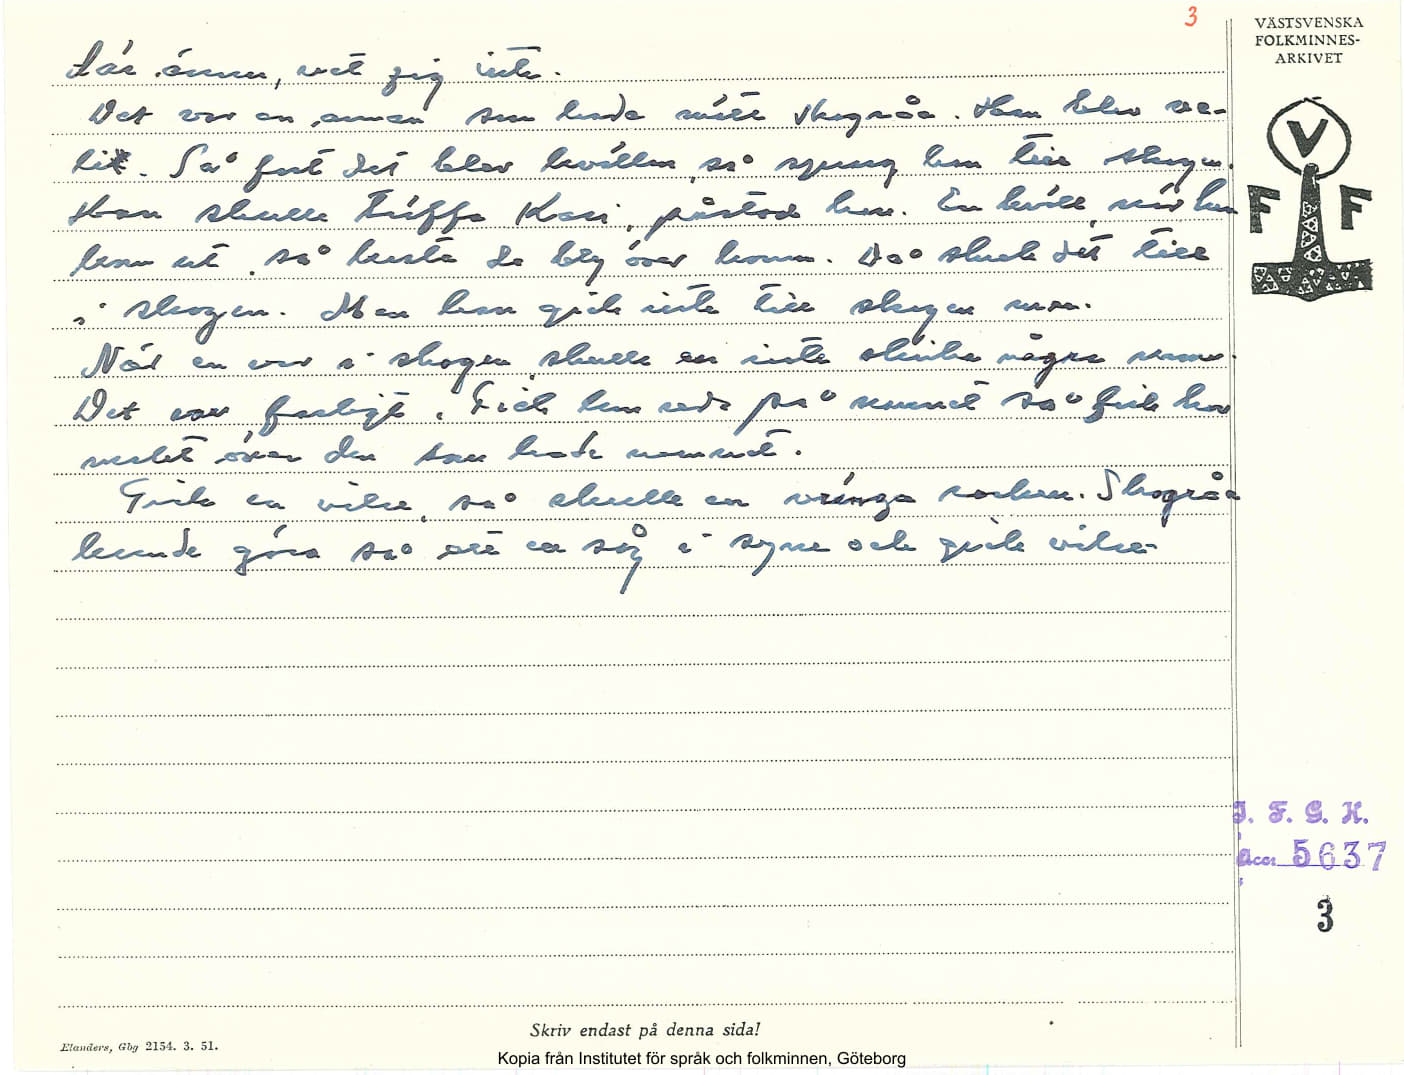 3
VÄSTSVENSKA
FOLKMINNES-
ARKIVET
V
F F
där ännu, vet jag inte.
Det var en annan som hade mött Skogråa. Han blev
Så fort det blev kvällen, så sprang han till skogen.
Han skulle träffa Kari, påstod han. En kväll, när han
kom ut, så kasta de bly över honom. Då skrek det till
i skogen. Men han gick inte till skogen mer.
När en var i skogen skulle en inte skrika några namn.
Det var farligt. Fick hon reda på namnet så fick hon
makt över den som hade namnet.
Gick en vilse, så skulle en vränga rocken. Skogråa
kunde göra så att en såg i syne och gick vilse.
I. F. G. H.
acc. 5637
3
Skriv endast på denna sida!
Elanders, Gbg 2154. 3. 51.
Kopia från Institutet för språk och folkminnen, Göteborg